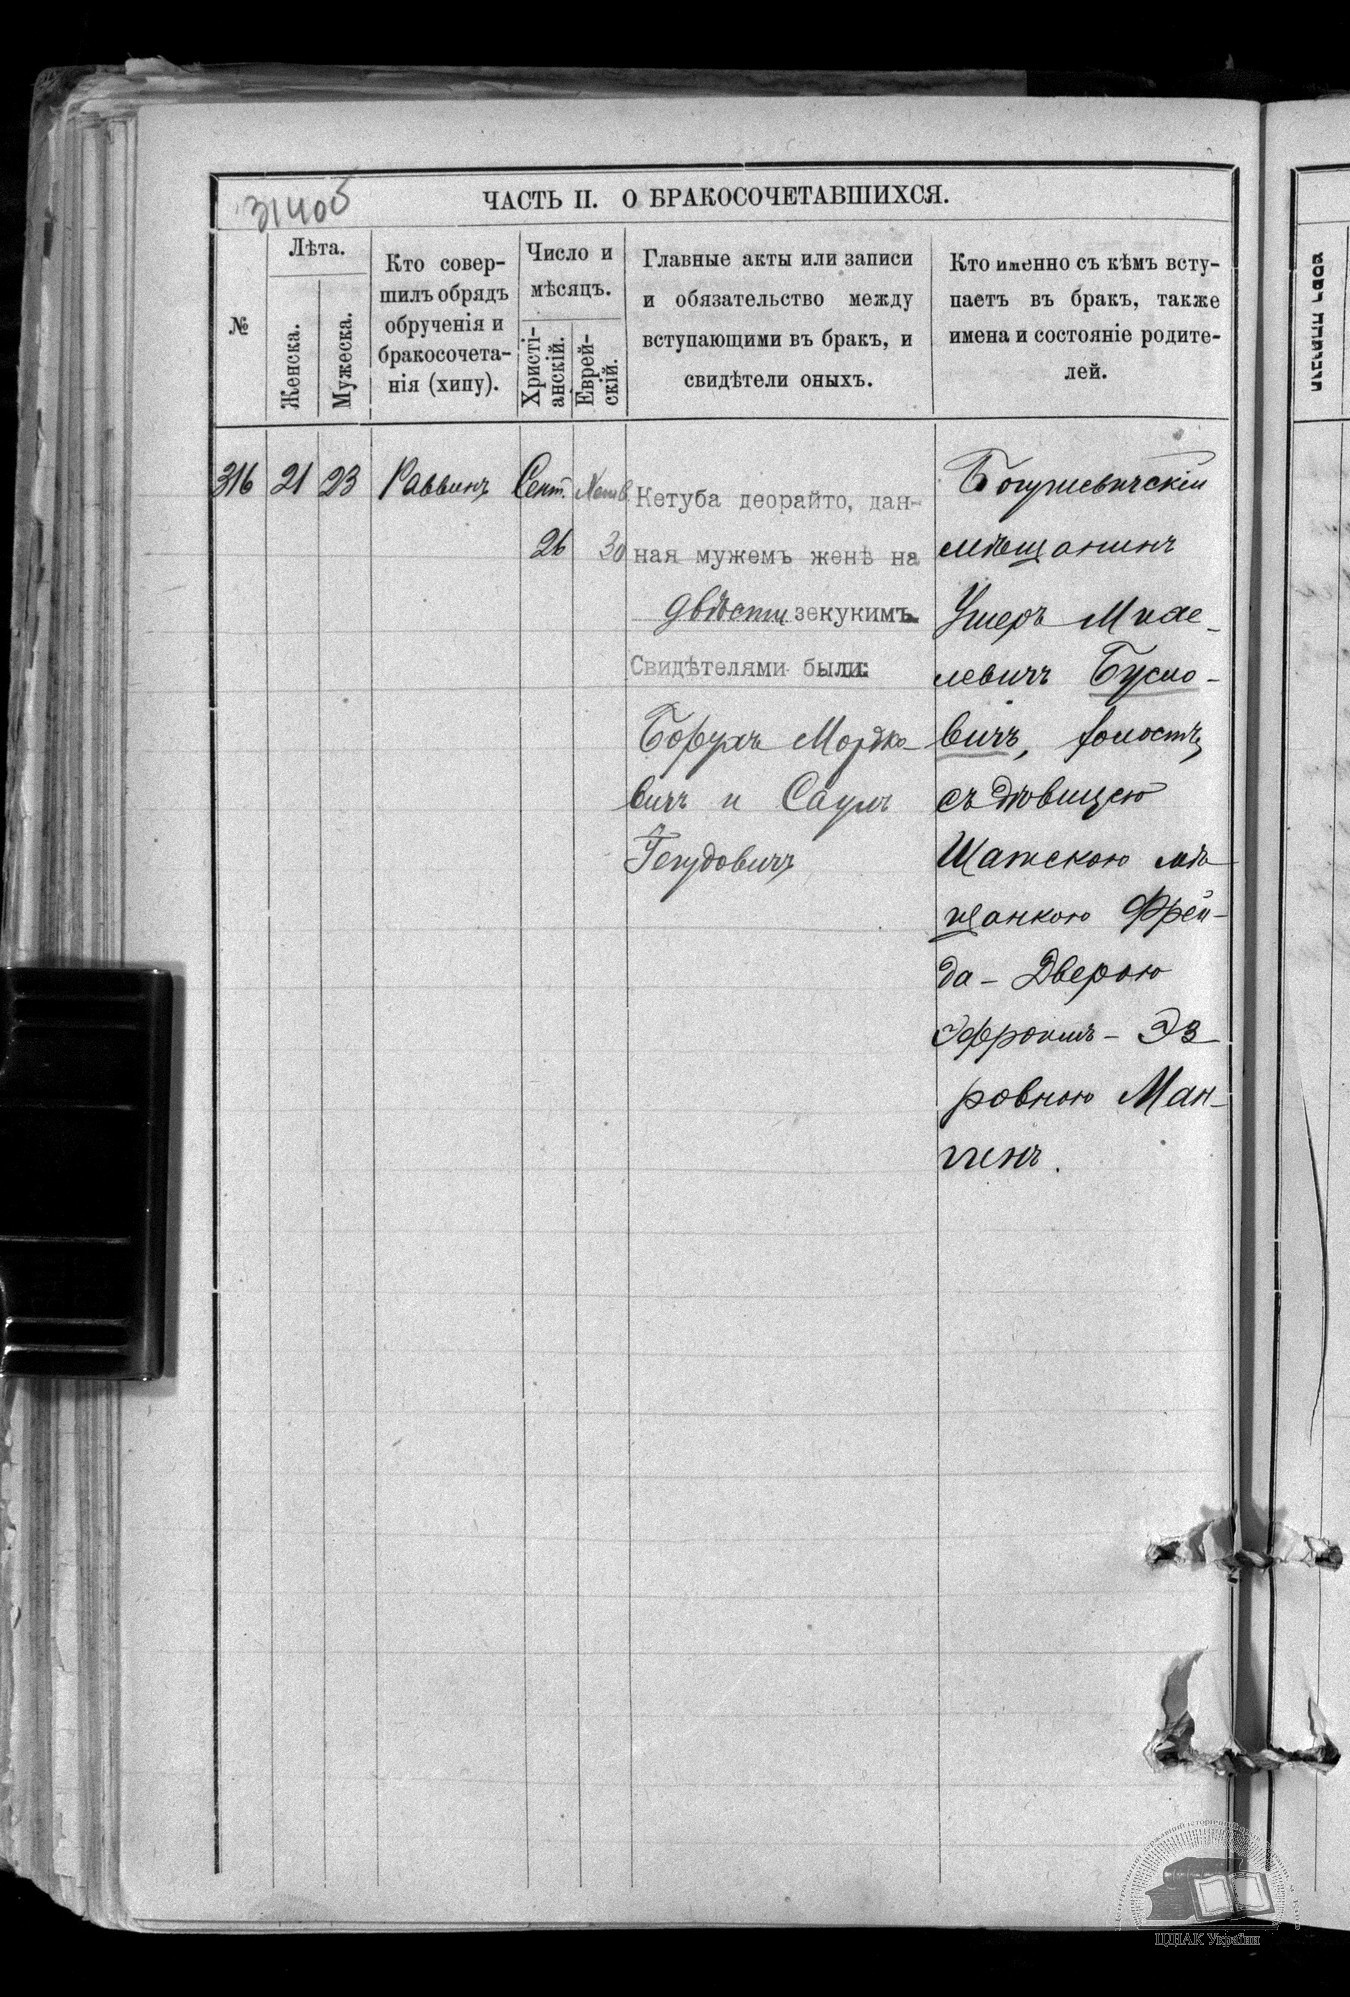 31405
ЧАСТЬ II. О БРАКОСОЧЕТАВШИХСЯ.
№
Лѣта.
Женска.
Мужеска.
Кто совер-
шилъ обрядъ
обрученія и
бракосочета-
нія (хипу).
Число и
мѣсяцъ.
Христі-
анскій.
Еврей-
скій.
Главные акты или записи
и обязательство между
вступающими въ бракъ, и
свидѣтели оныхъ.
Кто именно съ кѣмъ всту-
паетъ въ бракъ, также
имена и состояніе родите-
лей.
316
21
23
Раввинъ
Сент.
26
30
Кетуба деорайто, дан-
ная мужемъ женѣ на
двѣсти зекукимъ.
Свидѣтелями были:
Борухъ Мордко-
вичъ и Саулъ
Іегудовичъ
Богушевичскій
мѣщанинъ
Ушеръ Михе-
левичъ Бусло-
вичъ, холостъ,
съ дѣвицею
Шатскою мѣ-
щанкою Фрей-
да-Дверою
Эфроимъ-Эз
ровною Ман-
гинъ.
ЦДІАК України